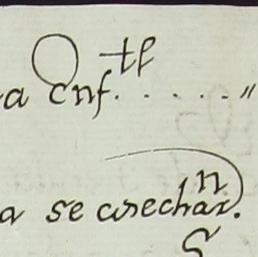 a Cnf.tl . . . . . "
a se cosechar.n